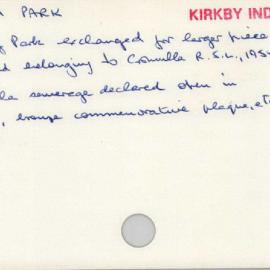 PARK
KIRKBY IND
Park exchanged for larger piece
belonging to Cronulla R.S.L., 195
sewerage declared open in
, bronze commemorative plaque, et